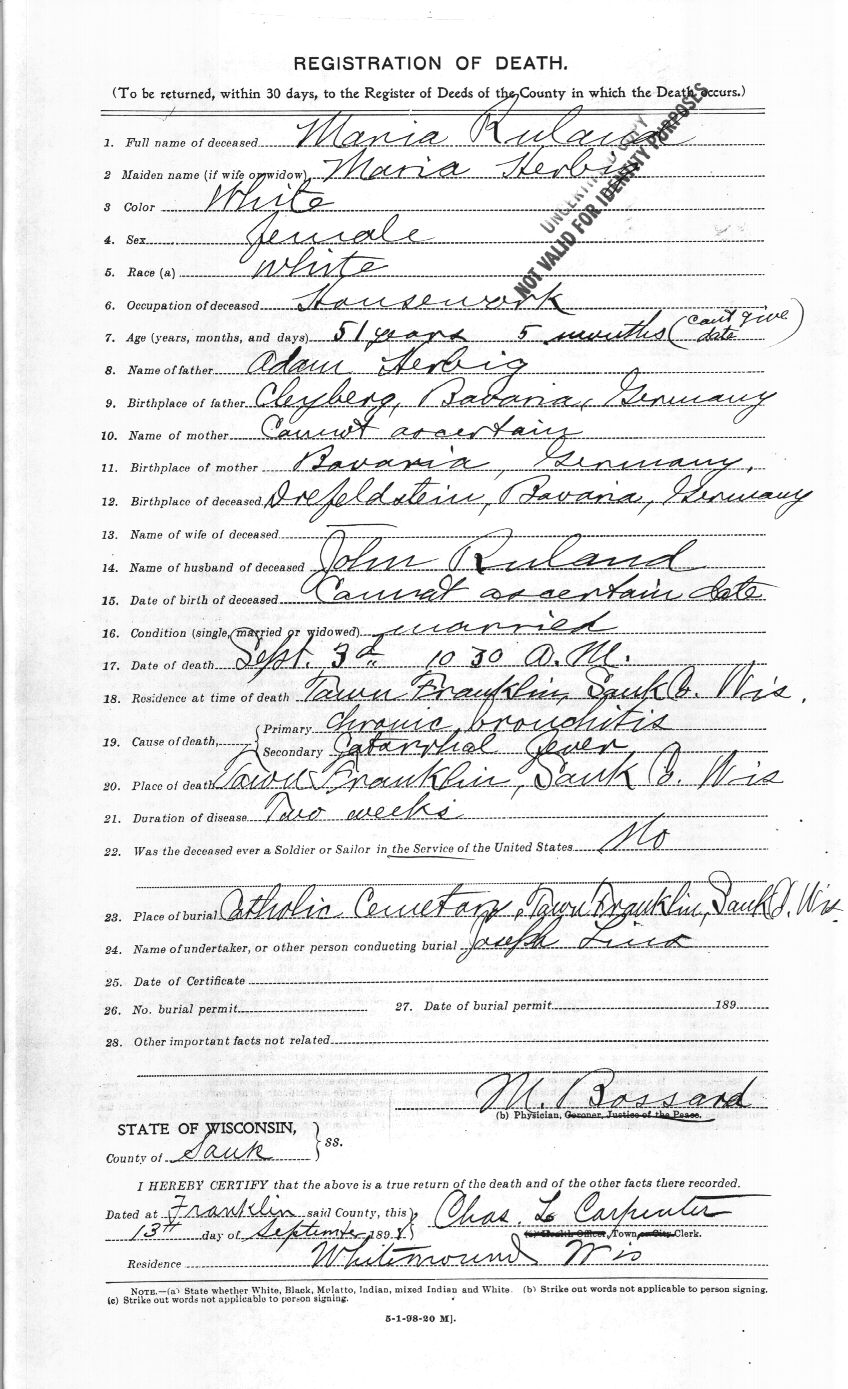 REGISTRATION OF DEATH.
(To be returned, within 30 days, to the Register of Deeds of the County in which the Death occurs.)
1. Full name of deceased Maria Ruland
2 Maiden name (if wife or widow) Maria Herbig
UNCERTIFIED COPY
NOT VALID FOR IDENTITY PURPOSES
3 Color White
4. Sex female
5. Race (a) White
6. Occupation of deceased Housework
7. Age (years, months, and days) 51 years 5 months (cant give date)
8. Name of father Adam Herbig
9. Birthplace of father Cleyberg, Bavaria, Germany
10. Name of mother Cannot ascertain
11. Birthplace of mother Bavaria, Germany,
12. Birthplace of deceased Drefeldstein, Bavaria, Germany
13. Name of wife of deceased
14. Name of husband of deceased John Ruland
15. Date of birth of deceased Cannot ascertain date
16. Condition (single, married or widowed) married
17. Date of death Sept. 3d 10 30 A. M.
18. Residence at time of death Town Franklin, Sauk Co. Wis.
19. Cause of death, Primary Chronic bronchitis
Secondary Catarrhal fever
20. Place of death Town Franklin, Sauk Co. Wis
21. Duration of disease Two weeks
22. Was the deceased ever a Soldier or Sailor in the Service of the United States No
23. Place of burial Catholic Cemetary, Town Franklin, Sauk Co. Wis.
24. Name of undertaker, or other person conducting burial Joseph Lins
25. Date of Certificate
26. No. burial permit 27. Date of burial permit 189
28. Other important facts not related
M. Bossard
(b) Physician, Coroner, Justice of the Peace.
STATE OF WISCONSIN,
County of Sauk } ss.
I HEREBY CERTIFY that the above is a true return of the death and of the other facts there recorded.
Dated at Franklin said County, this Chas. L. Carpenter
13th day of September 1898 (c) Health Officer, Town, or City Clerk.
Residence Whitemound Wis
NOTE.—(a) State whether White, Black, Mulatto, Indian, mixed Indian and White. (b) Strike out words not applicable to person signing.
(c) Strike out words not applicable to person signing.
5-1-98-20 M].